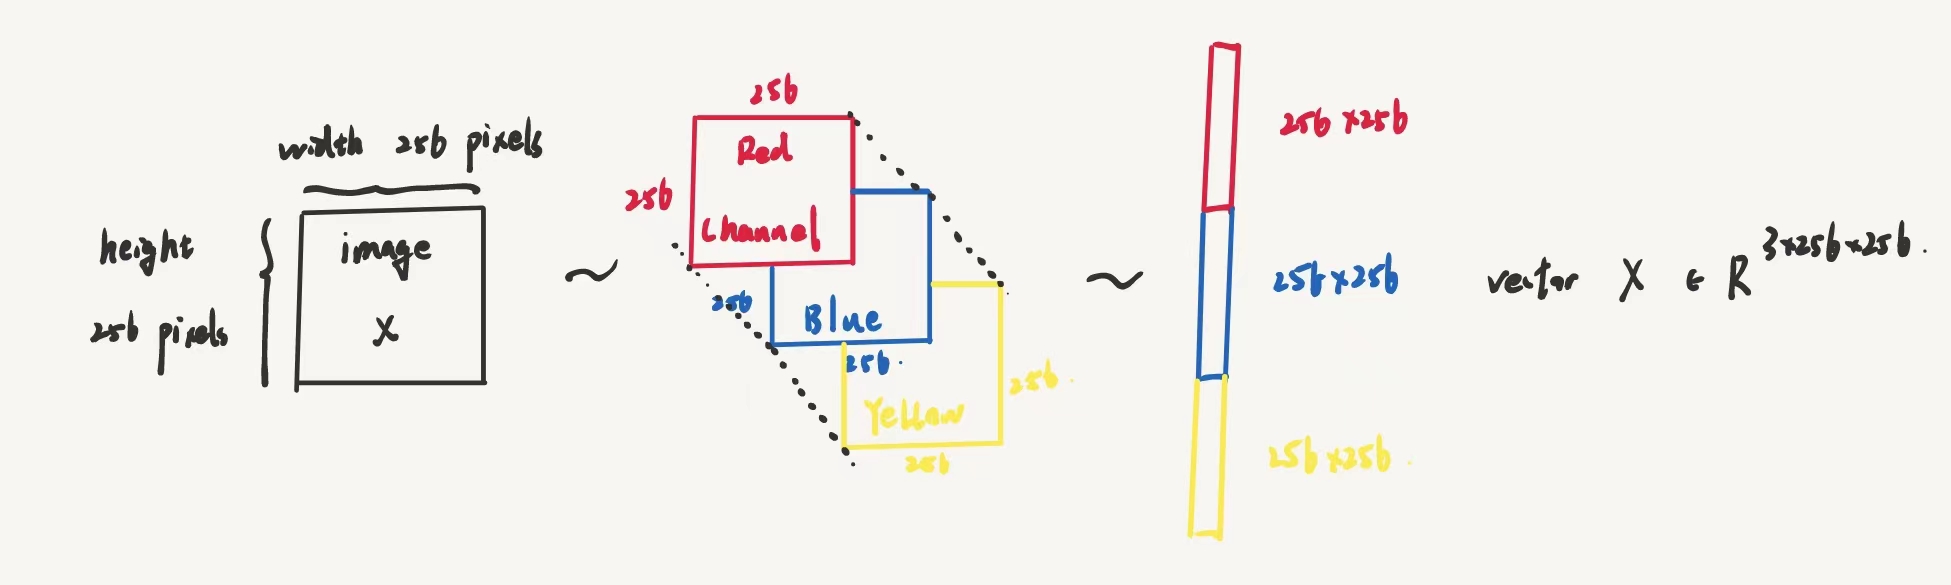 width 256 pixels
height
256 pixels
image
X
~
256
256
Red
Channel
256
Blue
256
Yellow
256
256
~
256×256
256×256
256×256
vector X ∈ R^3×256×256